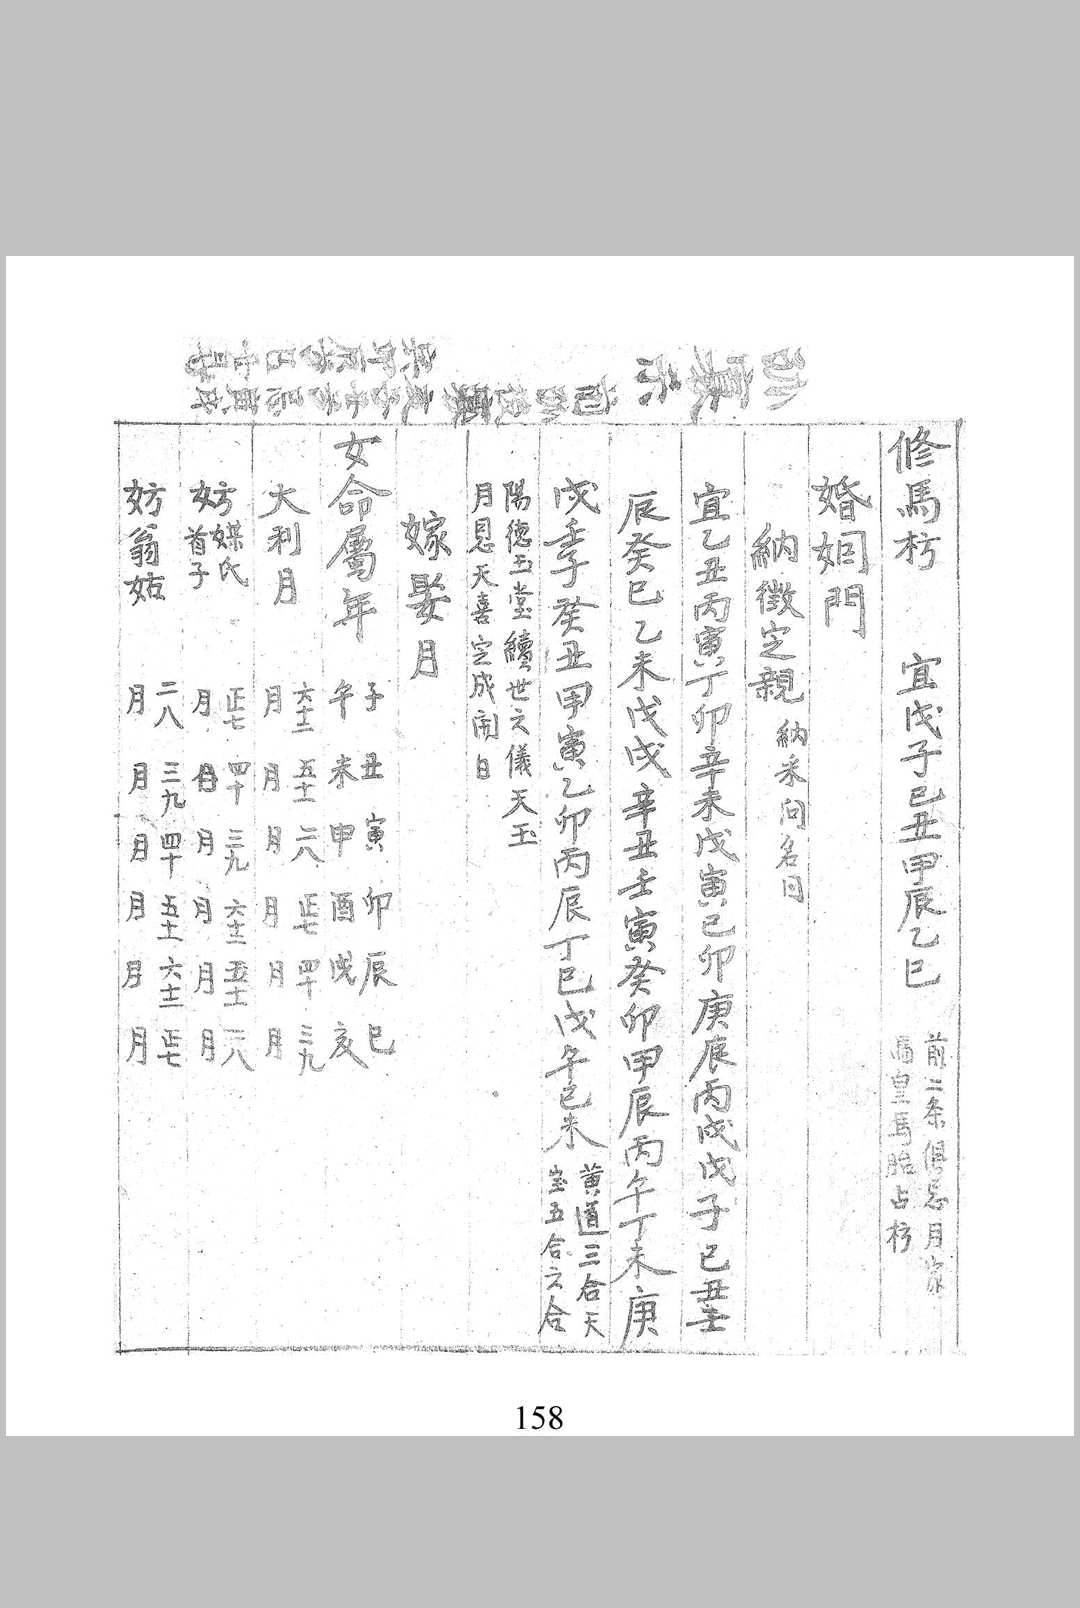 修馬枋 宜戊子己丑甲辰乙巳 前二条俱忌月家
皇馬胎占枋
婚姻門
納徵定親 納采问名同
宜乙丑丙寅丁卯辛未戊寅己卯庚辰丙戌戊子己丑壬
辰癸巳乙未戊戌辛丑壬寅癸卯甲辰丙午丁未庚
戌壬子癸丑甲寅乙卯丙辰丁巳戊午己未 黄道三合天
宝五合六合
陽德玉堂續世六儀天玉
月恩天喜定成開日
嫁娶月
女命屬年 子午 丑未 寅申 卯酉 辰戌 巳亥
大利月 六十二月 五十一月 二八月 正七月 四十月 三九月
妨媒氏首子 正七月 四十月 三九月 六十二月 五十一月 二八月
妨翁姑 二八月 三九月 四十月 五十一月 六十二月 正七月
158